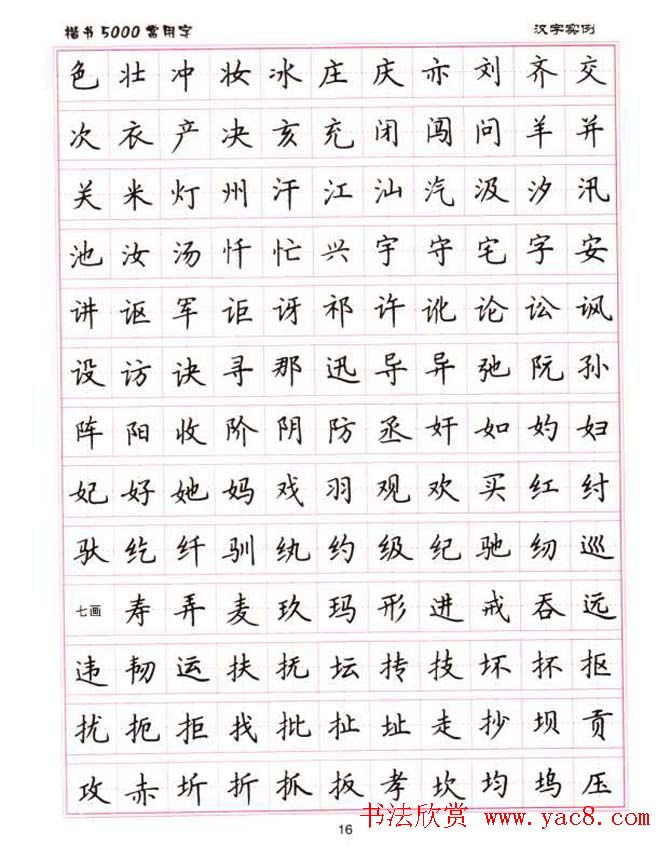 楷书5000常用字 汉字实例
色 壮 冲 妆 冰 庄 庆 亦 刘 齐 交
次 衣 产 决 亥 充 闭 闯 问 羊 并
关 米 灯 州 汗 江 汕 汽 汲 汐 汛
池 汝 汤 忏 忙 兴 宇 守 宅 字 安
讲 讴 军 讵 讶 祁 许 讹 论 讼 讽
设 访 诀 寻 那 迅 导 异 弛 阮 孙
阵 阳 收 阶 阴 防 丞 奸 如 妁 妇
妃 好 她 妈 戏 羽 观 欢 买 红 纣
驮 纥 纤 驯 纨 约 级 纪 驰 纫 巡
七画 寿 弄 麦 玖 玛 形 进 戒 吞 远
违 韧 运 扶 抚 坛 抟 技 坏 抔 抠
扰 扼 拒 找 批 扯 址 走 抄 坝 贡
攻 赤 圻 折 抓 扳 孝 坎 均 坞 压
16 书法欣赏 www.yac8.com